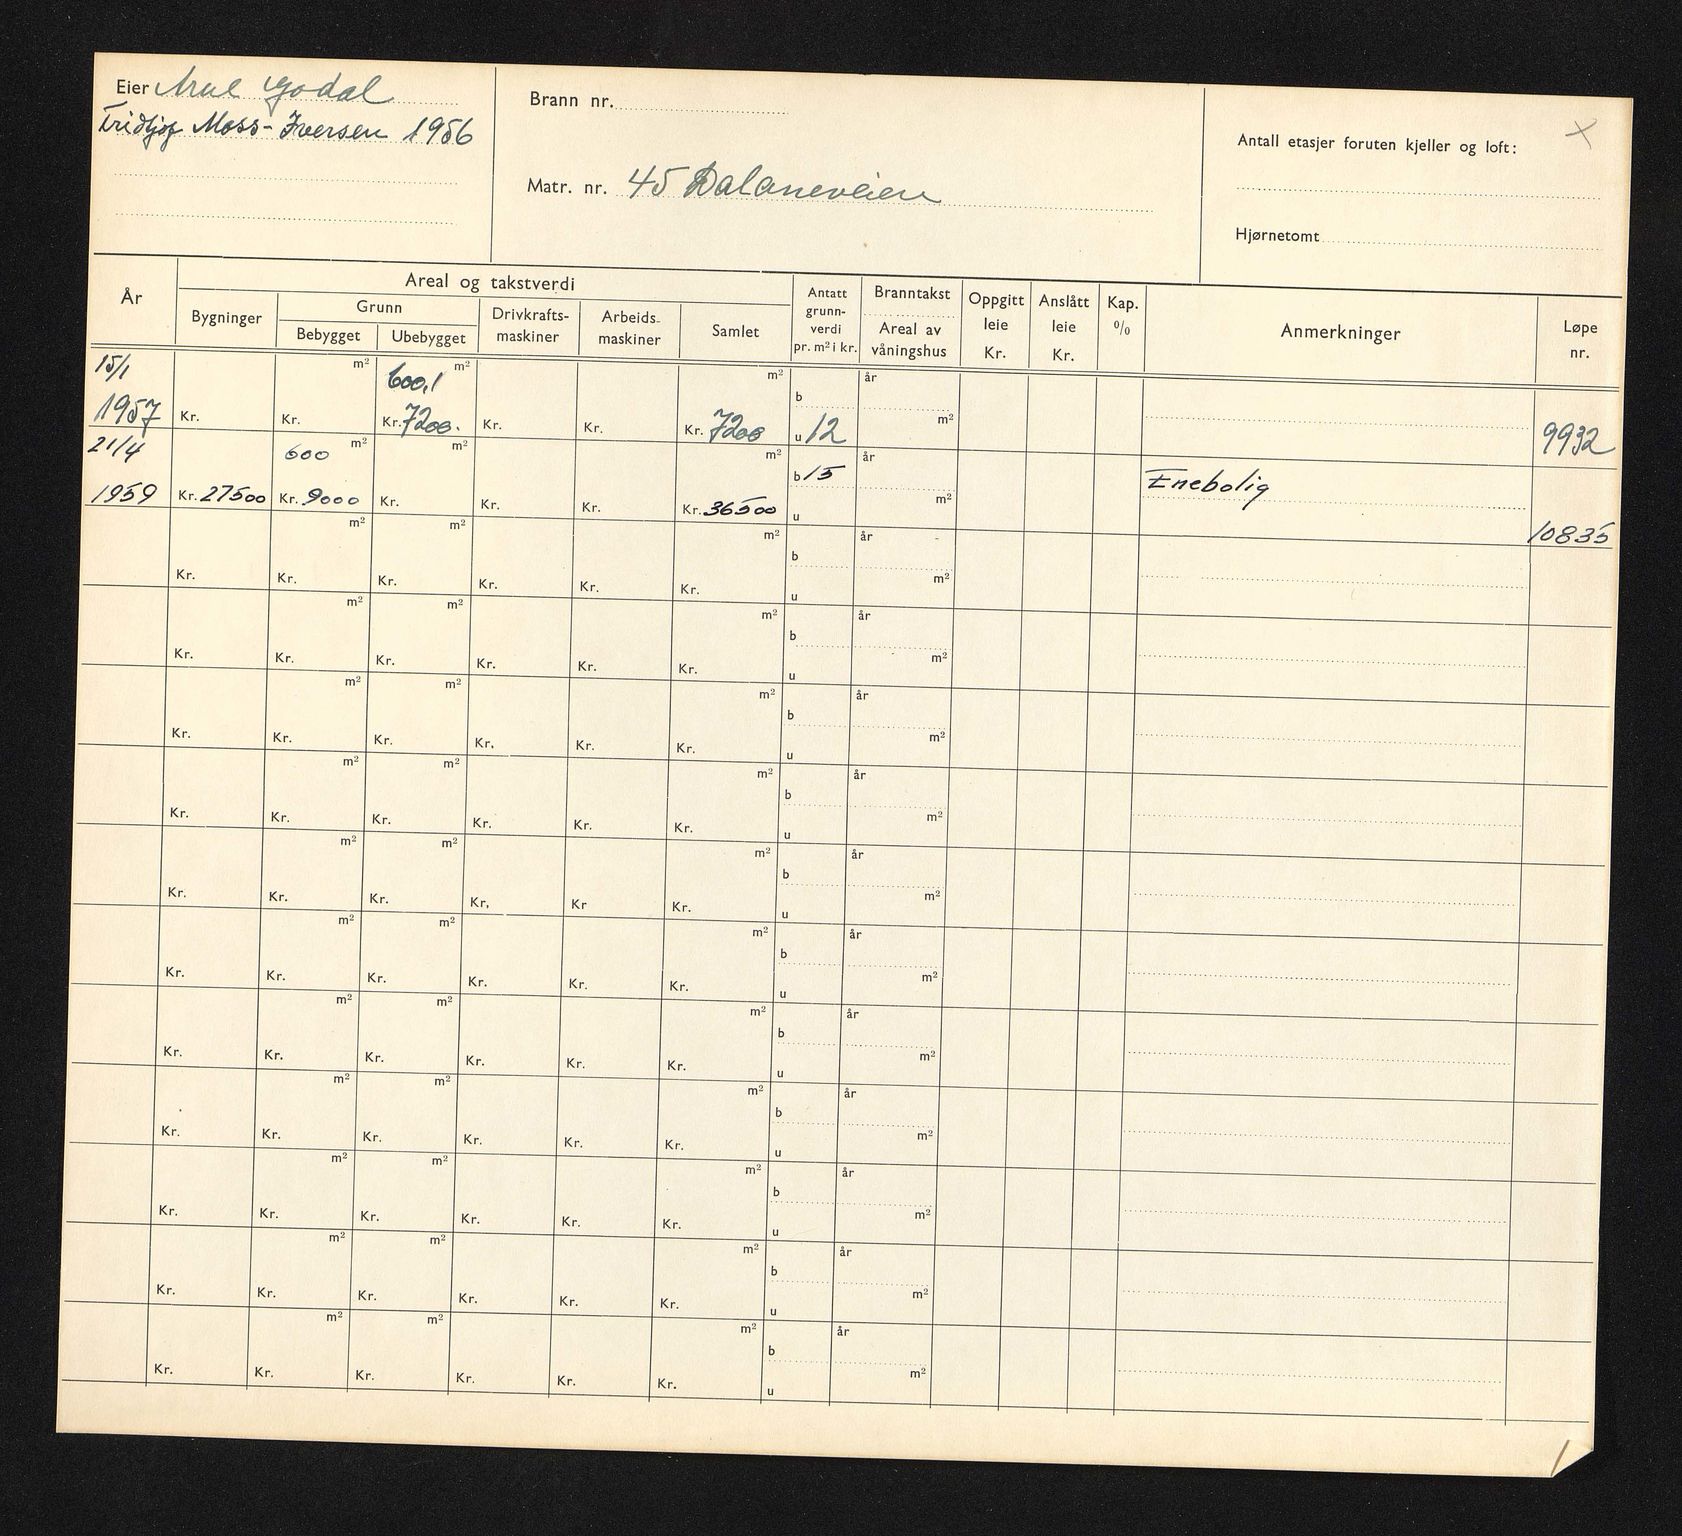 Eier Arne Godal
Fridtjof Moss-Iversen 1956
Brann nr.
Matr. nr. 45 Dalaneveien
Antall etasjer foruten kjeller og loft:
Hjørnetomt
År
Areal og takstverdi
Bygninger
Grunn
Bebygget Ubebygget
Drivkrafts-
maskiner
Arbeids-
maskiner
Samlet
Antatt
grunn-
verdi
pr. m² i kr.
Branntakst
Areal av
våningshus
Oppgitt
leie
Kr.
Anslått
leie
Kr.
Kap.
%
Anmerkninger
Løpe
nr.
15/1 m² 600,1 m² m² b år
1957 Kr. Kr. Kr. 7200. Kr. Kr. Kr. 7200 u 12 m² 9932
21/4 600 m² m² m² b 15 år Enebolig
1959 Kr. 27500 Kr. 9000 Kr. Kr. Kr. Kr. 36500 u m² 10835
m² m² m² b år
Kr. Kr. Kr. Kr. Kr. Kr. u m²
m² m² m² b år
Kr. Kr. Kr. Kr. Kr. Kr. u m²
m² m² m² b år
Kr. Kr. Kr. Kr. Kr. Kr. u m²
m² m² m² b år
Kr. Kr. Kr. Kr. Kr. Kr. u m²
m² m² m² b år
Kr. Kr. Kr. Kr. Kr Kr. u m²
m² m² m² b år
Kr. Kr. Kr. Kr. Kr. Kr. u m²
m² m² m² b år
Kr. Kr. Kr. Kr. Kr. Kr. u m²
m² m² m² b år
Kr. Kr. Kr. Kr. Kr. Kr. u m²
m² m² m² b år
Kr. Kr. Kr. Kr. Kr. Kr. u m²
m² m² m² b år
Kr. Kr. Kr. Kr. Kr. Kr. u m²
m² m² m² b år
Kr. Kr. Kr. Kr. Kr. Kr. u m²